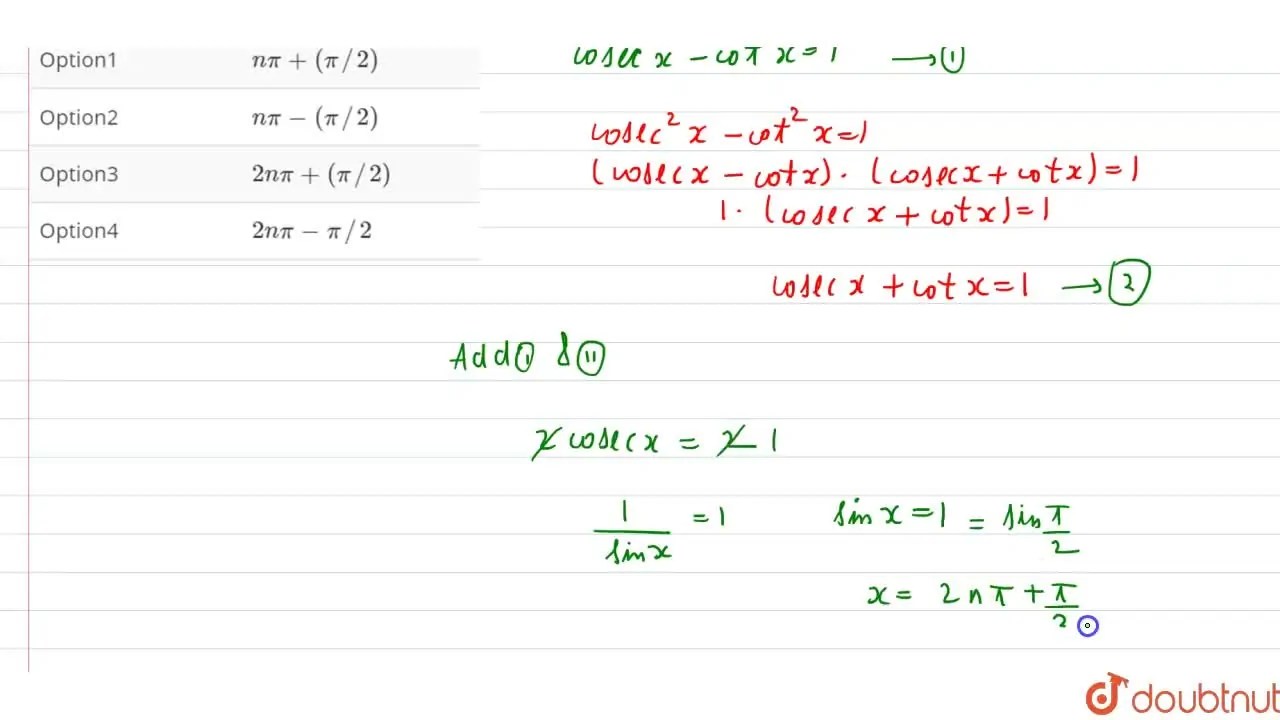 Option1 nπ + (π/2)
Option2 nπ − (π/2)
Option3 2nπ + (π/2)
Option4 2nπ − π/2
cosec x − cot x = 1 → ①
cosec² x − cot² x = 1
(cosec x − cot x) · (cosec x + cot x) = 1
1 · (cosec x + cot x) = 1
cosec x + cot x = 1 → ②
Add Ⓘ & Ⓘⓘ
2 cosec x = 2 1
1/sin x = 1 sin x = 1 = sin π/2
x = 2nπ + π/2
doubtnut